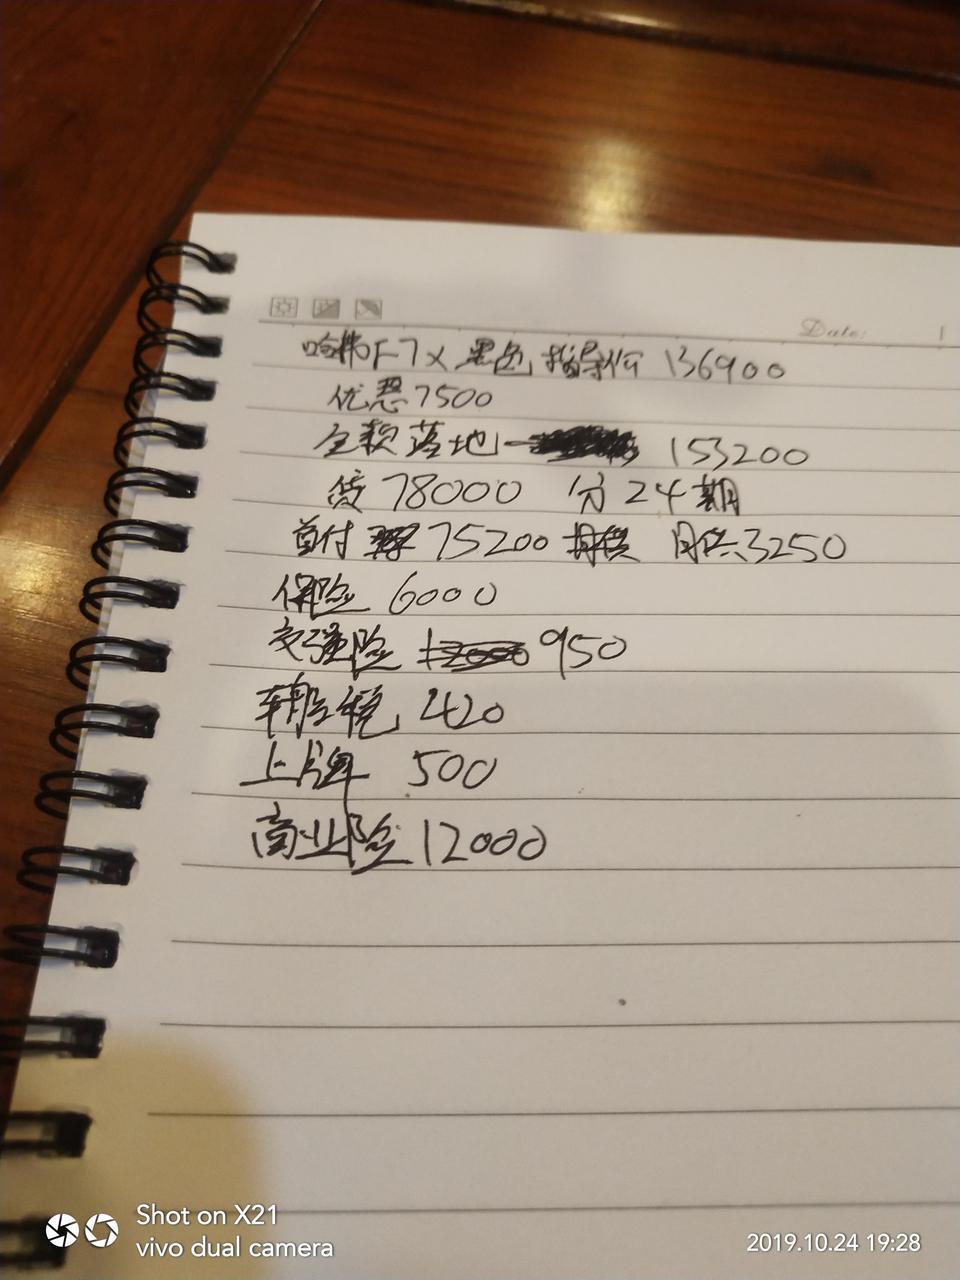 Date:
哈弗F7x 黑色 指导价 136900
优惠7500
全款落地 153200
贷 78000 分24期
首付 75200 月供3250
保险 6000
交强险 950
车船税 420
上牌 500
商业险 12000
Shot on X21
vivo dual camera
2019.10.24 19:28